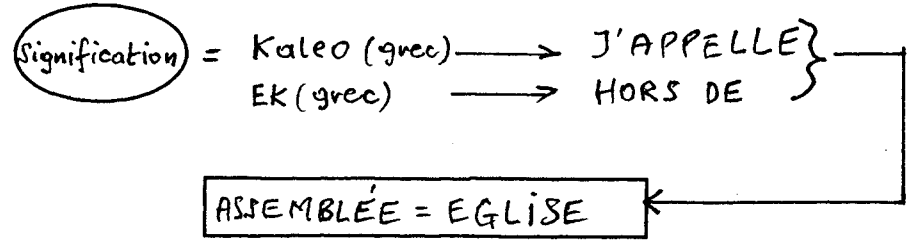 Signification = Kaleo (grec) → J'APPELLE
EK (grec) → HORS DE
ASSEMBLÉE = EGLISE